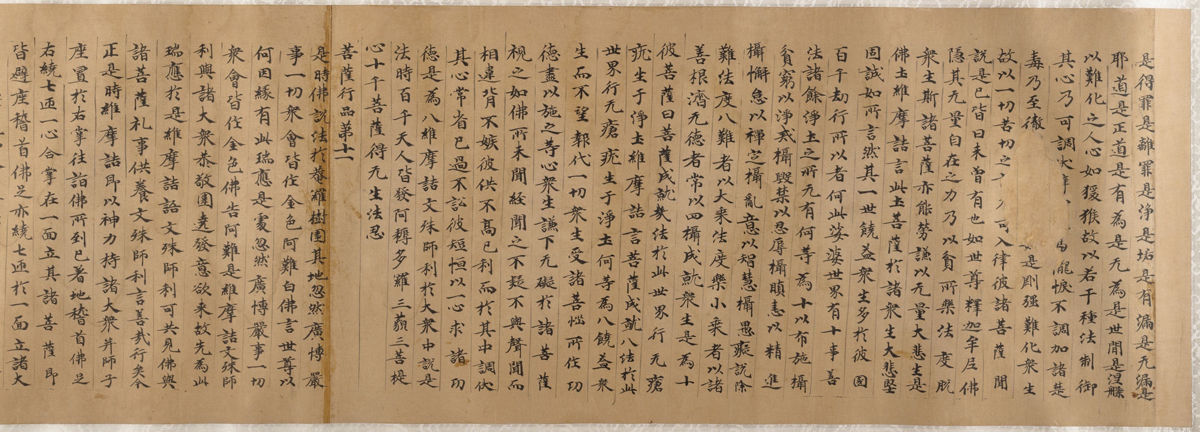 是得罪是離罪是淨是垢是有漏是无漏是
耶道是正道是有為是无為是世間是涅槃
以難化之人心如猨猴故以若干種法制御
其心乃可調伏 㦬悷不調加諸楚
毒乃至徹 是剛强難化衆生
故以一切苦切之 可入律彼諸菩薩聞
說是已皆曰未曾有也如世尊釋迦牟尼佛
隱其无量自在之力乃以貧所樂法度脫
衆生斯諸菩薩亦能勞謙以无量大悲生是
佛土維摩詰言此土菩薩於諸衆生大悲堅
固誠如所言然其一世饒益衆生多於彼國
百千劫行所以者何此娑婆世界有十事善
法諸餘淨土之所无有何等為十以布施攝
貧窮以淨戒攝毀禁以忍辱攝瞋恚以精進
攝懈怠以禪定攝亂意以智慧攝愚癡說除
難法度八難者以大乘法度樂小乘者以諸
善根濟无德者常以四攝成就衆生是為十
彼菩薩曰菩薩成就幾法於此世界行无瘡
疣生于淨土維摩詰言菩薩成就八法於此
世界行无瘡疣生于淨土何等為八饒益衆
生而不望報代一切衆生受諸苦惱所作功
德盡以施之等心衆生謙下无礙於諸菩薩
視之如佛所未聞經聞之不疑不與聲聞而
相違背不嫉彼供不高己利而於其中調伏
其心常省己過不訟彼短恒以一心求諸功
德是為八維摩詰文殊師利於大衆中說是
法時百千天人皆發阿耨多羅三藐三菩提
心十千菩薩得无生法忍
菩薩行品第十一
是時佛說法於菴羅樹園其地忽然廣博嚴
事一切衆會皆作金色阿難白佛言世尊以
何因緣有此瑞應是處忽然廣博嚴事一切
衆會皆作金色佛告阿難是維摩詰文殊師
利與諸大衆恭敬圍遶發意欲來故先為此
瑞應於是維摩詰語文殊師利可共見佛與
諸菩薩礼事供養文殊師利言善哉行矣今
正是時維摩詰即以神力持諸大衆并師子
座置於右掌往詣佛所到已著地稽首佛足
右繞七迊一心合掌在一面立其諸菩薩即
皆避座稽首佛足亦繞七迊於一面立諸大